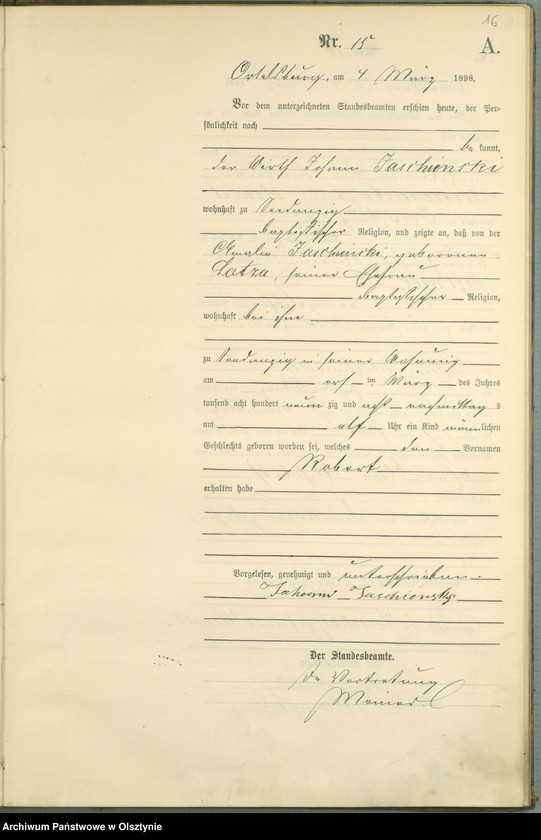 16
Nr. 15
A.
Ortelsburg, am 4 März 1898.
Vor dem unterzeichneten Standesbeamten erschien heute, der Per-
sönlichkeit nach
be kannt,
der Wirth Johann Jaschienski
wohnhaft zu
baptistischer Religion, und zeigte an, daß von der
Amalie Jaschinski, geborenen
Latza, seiner Ehefrau
baptistischer Religion,
wohnhaft bei ihm
zu in seiner Wohnung
am ersten März des Jahres
tausend acht hundert neun zig und acht nachmittag s
um elf Uhr ein Kind männlichen
Geschlechts geboren worden sei, welches den Vornamen
Robert
erhalten habe
Vorgelesen, genehmigt und unterschrieben
Johann Jaschionsky
Der Standesbeamte.
In Vertretung
Archiwum Państwowe w Olsztynie